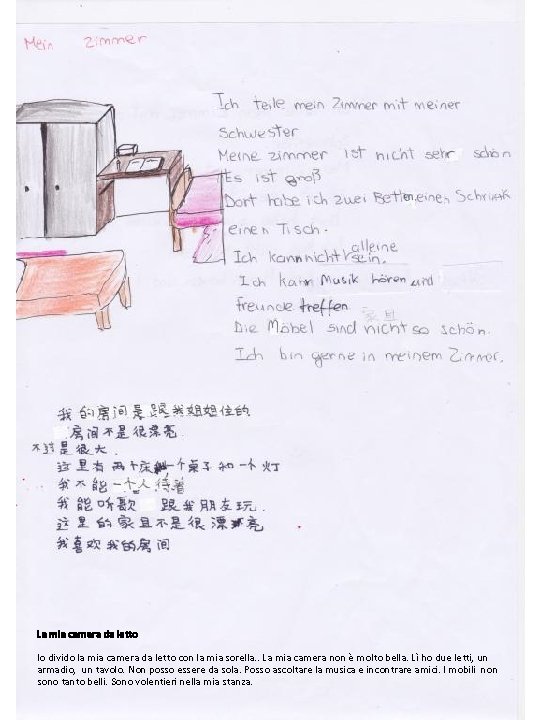 Mein Zimmer
Ich teile mein Zimmer mit meiner
Schwester
Meine zimmer ist nicht sehr schön
Es ist groß
Dort habe ich zwei Betten, einen Schrank
einen Tisch.
Ich kann nicht alleine sein.
Ich kann Musik hören und
freunde treffen
家且
Die Möbel sind nicht so schön.
Ich bin gerne in meinem Zimmer.
我的房间是跟我姐姐住的
房间不是很漂亮.
不过是很大.
这里有两个床 一个桌子和一个灯
我不能一个人待着
我能听歌 跟我朋友玩.
这里的家且不是很漂亮
我喜欢我的房间
La mia camera da letto
Io divido la mia camera da letto con la mia sorella.. La mia camera non è molto bella. Lì ho due letti, un
armadio, un tavolo. Non posso essere da sola. Posso ascoltare la musica e incontrare amici. I mobili non
sono tanto belli. Sono volentieri nella mia stanza.